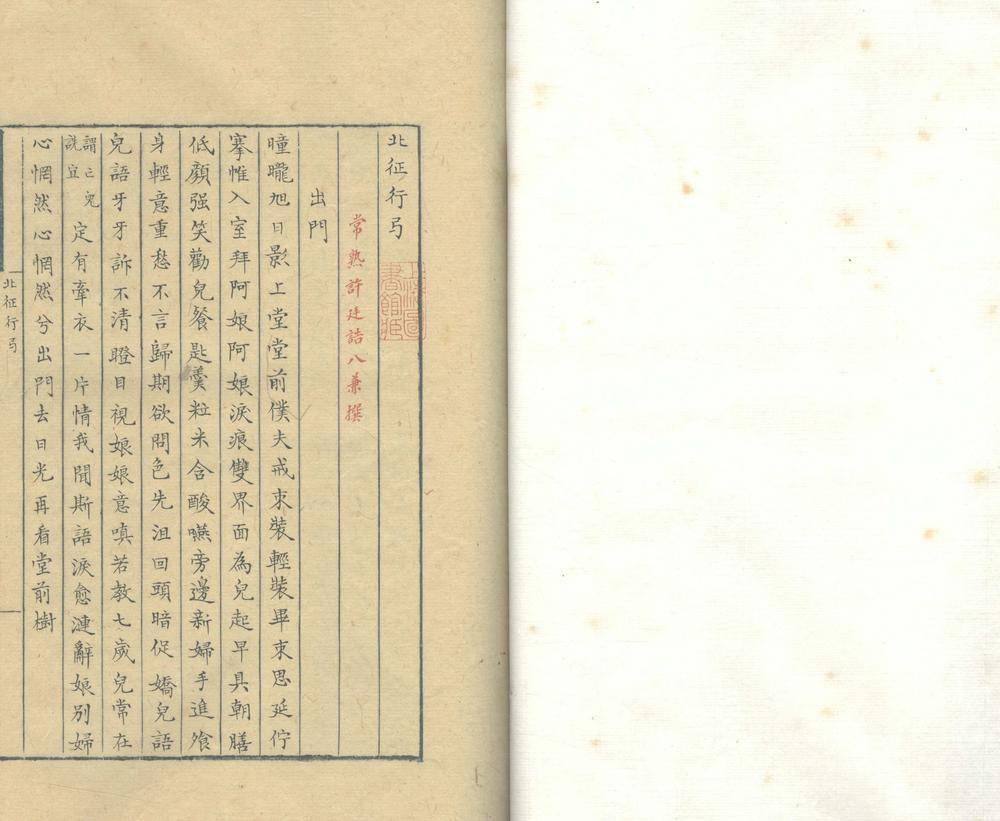 北征行弓
上海圖書館藏
常熟許廷誥八兼撰
出門
曈曨旭日影上堂堂前僕夫戒束裝輕裝畢束思延佇
搴帷入室拜阿娘阿娘淚痕雙界面為兒起早具朝膳
低顏强笑勸兒餐匙羹粒米含酸嚥旁邊新婦手進飱
身輕意重愁不言歸期欲問色先沮回頭暗促嬌兒語
兒語牙牙訴不清瞪目視娘娘意嗔若教七歲兒常在
謂亡兒詵宜定有牽衣一片情我聞斯語淚愈漣辭娘別婦
心惘然心惘然兮出門去日光再看堂前樹
北征行弓